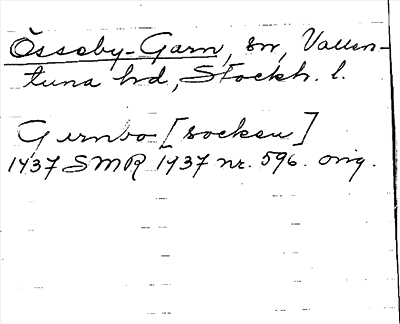 Össeby-Garn, sn, Vallen-
tuna hd, Stockh. l.
Gernbo [socken]
1437 SMR 1437 nr. 596. orig.